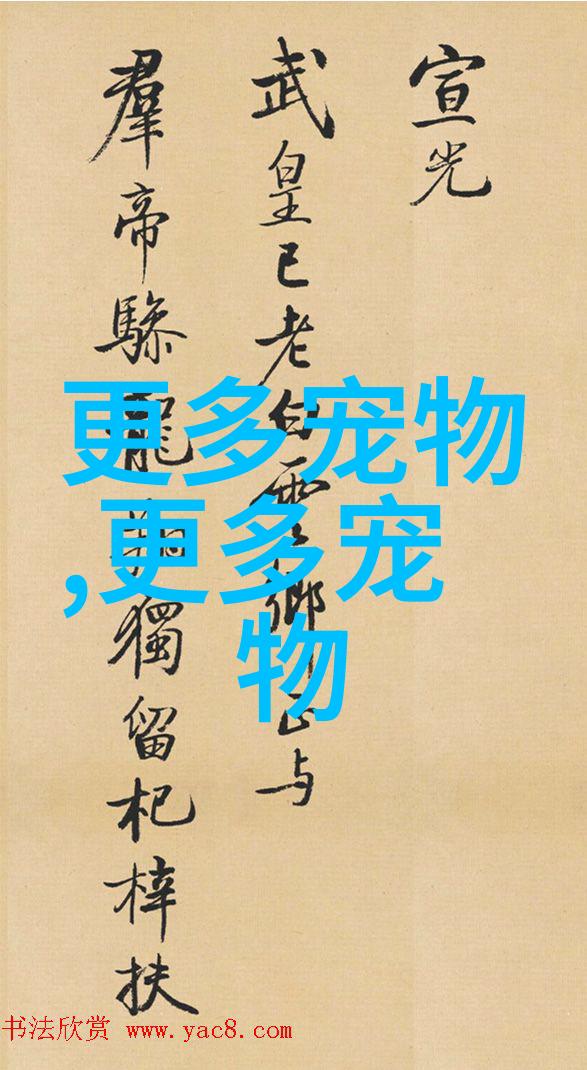 宣光
武皇已老白雲鄉正与
羣帝驂龍翔獨留杞梓扶
更多宠物
,更多宠
物
书法欣赏 www.yac8.com